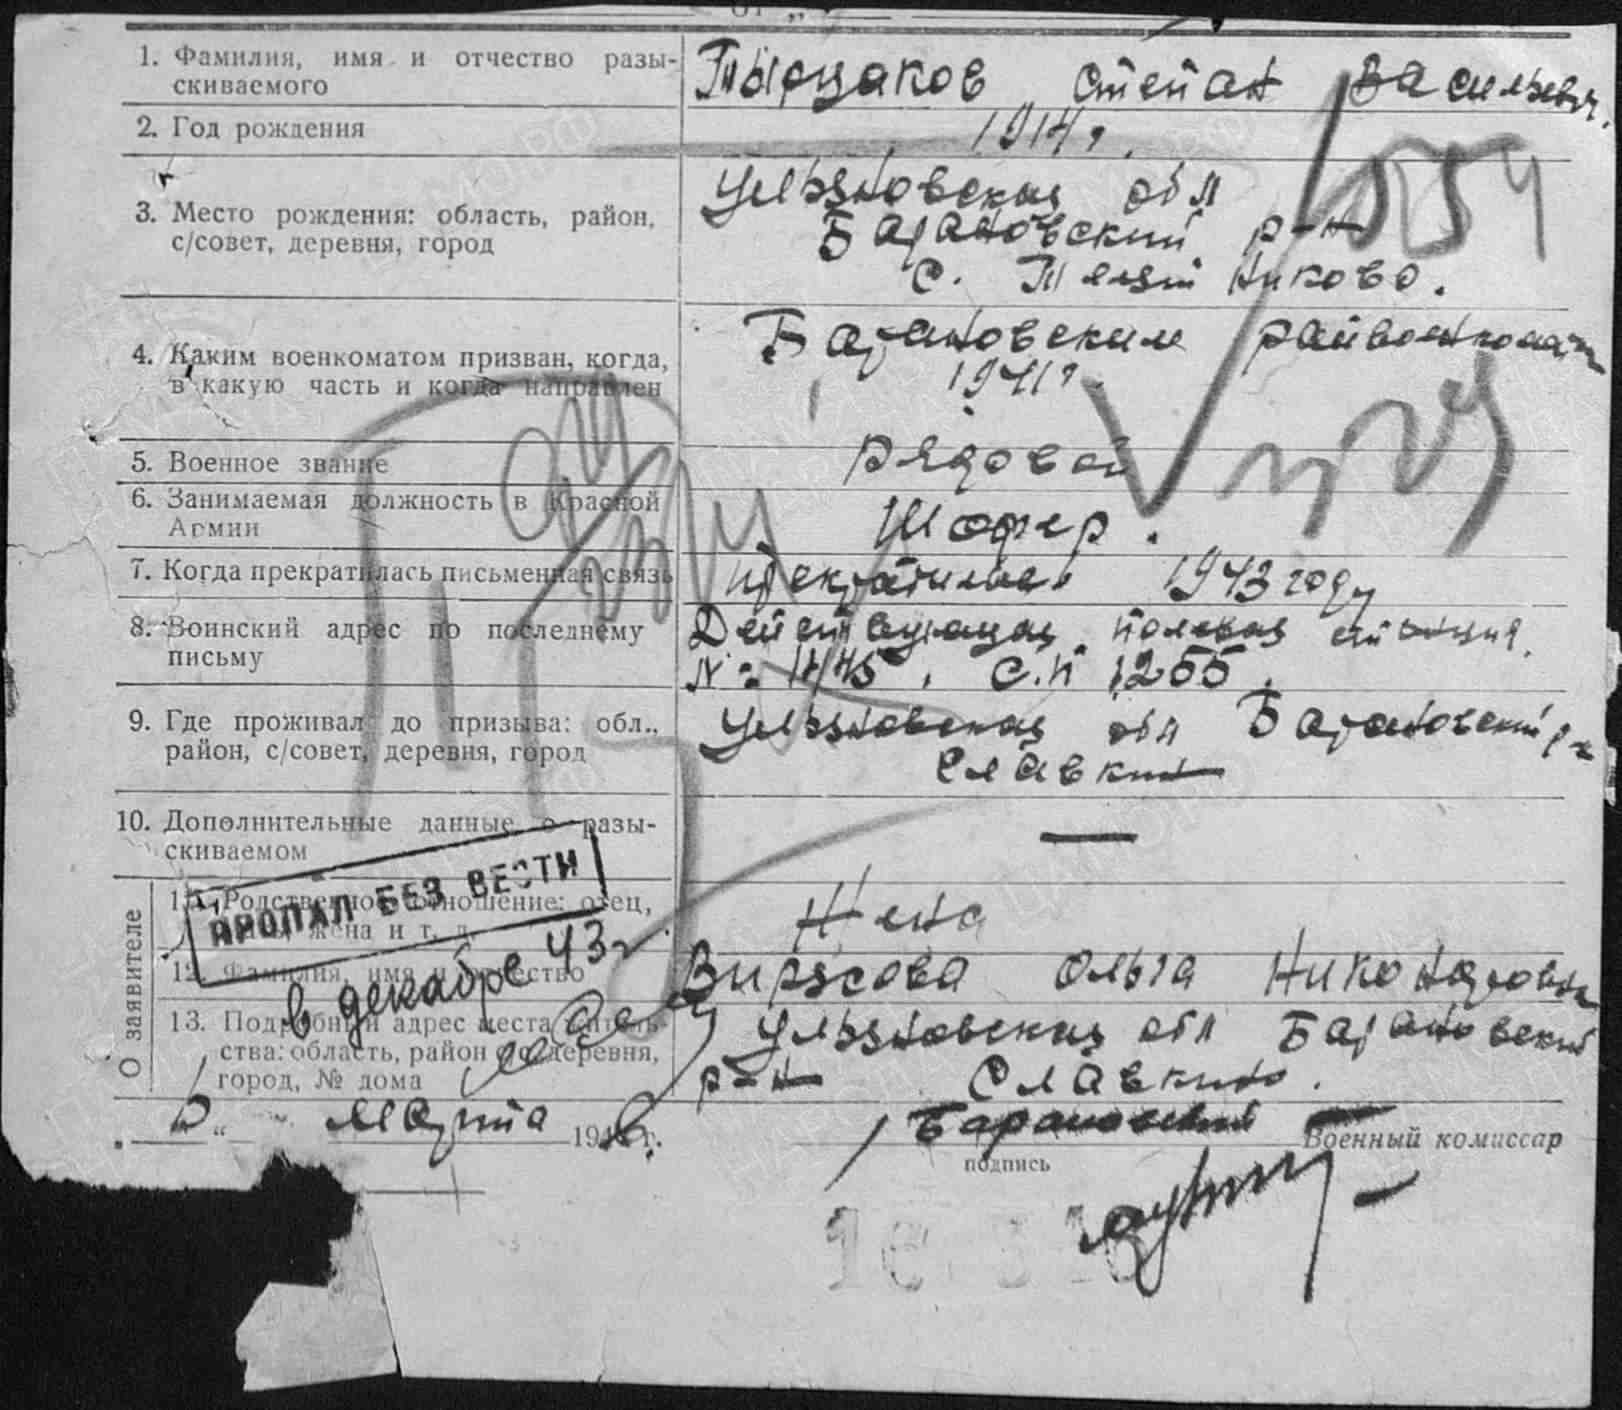 1. Фамилия, имя и отчество разы-
скиваемого
Степан Васильевич.
2. Год рождения
1914 г.
3. Место рождения: область, район,
с/совет, деревня, город
Ульяновская обл
Барановский р-н
с.
4. Каким военкоматом призван, когда,
в какую часть и когда направлен
Барановским райвоенкомат
1941 г.
5. Военное звание
рядовой
6. Занимаемая должность в Красной
Армии
Шофер.
7. Когда прекратилась письменная связь
1943 году
8. Воинский адрес по последнему
письму
полевая станция.
С.П 1255.
9. Где проживал до призыва: обл.,
район, с/совет, деревня, город
Ульяновская обл Барановский р-н
Славкин
10. Дополнительные данные о разы-
скиваемом
—
О заявителе
11. Родственное отношение: отец,
жена и т. д.
Жена
ПРОПАЛ БЕЗ ВЕСТИ
в декабре 43 г.
12. Фамилия, имя и отчество
Вирясова Ольга
13. Подробный адрес места житель-
ства: область, район деревня,
город, № дома
Ульяновская обл Барановский
р-н Славкино.
Марта 194 г.
Барановский Военный комиссар
подпись